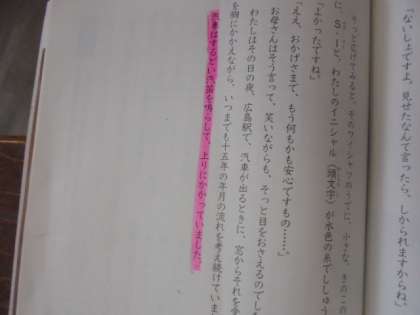 「ないしょですよ。見せたなんて言ったら、しかられますからね。」
そっと広げてみると、そのワイシャツのうでに、小さな、きのこの
に、S・Iと、わたしのイニシャル（頭文字）が水色の糸でししゅう
「よかったですね。」
「ええ、おかげさまで、もう何もかも安心ですもの……。」
お母さんはそう言って、笑いながらも、そっと目をおさえるのでした
わたしはその日の夜、広島駅で、汽車が出るときに、窓からそれを受
を胸にかかえながら、いつまでも十五年の年月の流れを考え続けていま
汽車はするどい汽笛を鳴らして、上りにかかっていました。